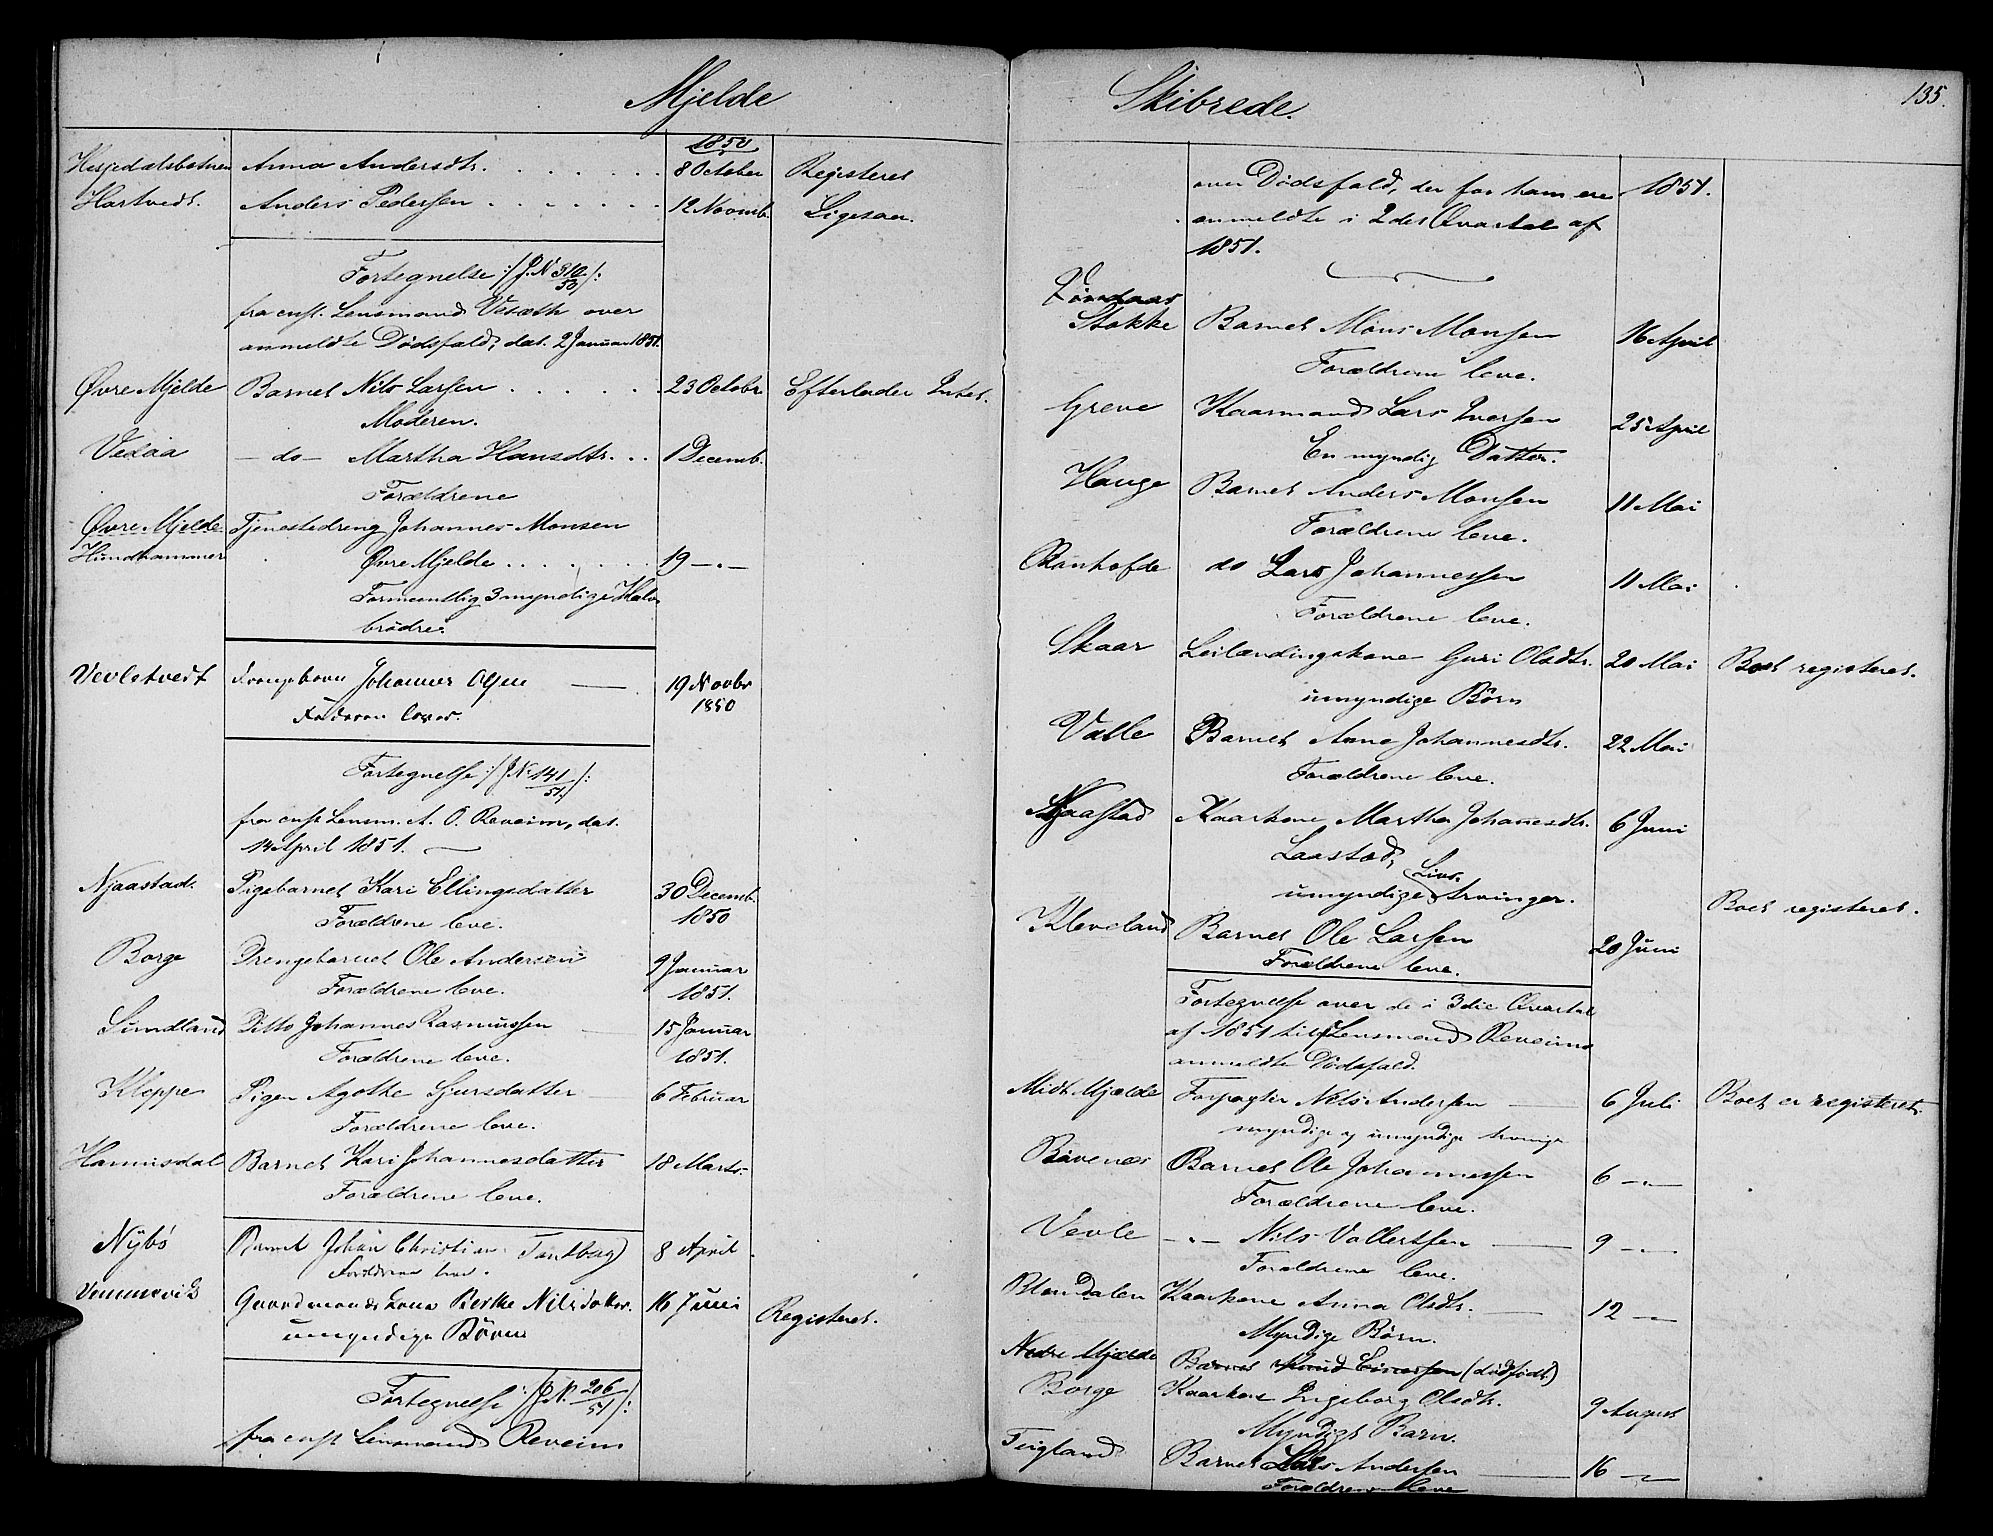 Mjelde
1850
Hesjedalsbotnen Anna Andersdtr. . . . . . . 8 October Registeret
Hartvedt. Anders Pedersen . . . . . . . 12 Novemb. Ligesaa.
Fortegnelse :/J. N 310/50/:
fra const. Lensmand Veseth over
anmeldte Dødsfald, dat. 2 Januar 1851.
Øvre Mjelde Barnet Nils Larsen . . . . . 23 Octobr Efterlader Intet.
Moderen.
Vedaa — do — Martha Hansdtr. . . 1 Decemb.
Forældrene
Øvre Mjelde Tjenestedreng Johannes Monsen
Hundhammer Øvre Mjelde . . . . . . 19 —.—
Formeentlig 3 myndige Halv
brødre.
Vevletvedt Drengebarn Johannes Olsen — 19 Novbr
1850
Faderen lever.
Fortegnelse :/J. No 141/51./:
fra const Lensm. A. O. Reveim, dat.
14 April 1851. —
Njaastad. Pigebarnet Kari Ellingsdatter 30 Decemb.
Forældrene leve. 1850
Borge Drengebarnet Ole Andersen 9 Januar
Forældrene leve. 1851.
Sundland Ditto Johannes Rasmussen 15 Januar
Forældrene leve. 1851.
Kleppe Pigen Agothe Sjursdatter 6 Februar
Forældrene leve.
Hannisdal Barnet Kari Johannesdatter 18 Marts
Forældrene leve.
Nÿbø Barnet Johan Christian Tandberg 8 April
Forældrene leve.
Vemmevik Gaardmands Kona Berthe Nilsdatter. 16 Juni Registeret.
umyndige Børn
Fortegnelse :/J. N. 206/51/:
fra const Lensmand Reveim
Skibrede.
135.
over Dødsfald, der for ham ere 1851.
anmeldte i 2det Qvartal af
1851.
Stokke Barnet Mons Monsen 16 April
Forældrene leve.
Greve Kaarmand Lars Iversen 25 April
En myndig Datter.
Hauge Barnet Anders Monsen 11 Mai
Forældrene leve.
do Lars Johannessen 11 Mai
Forældrene leve.
Skaar Leilændingskone Guri Olsdtr. 20 Mai Boet registeret.
umyndige Börn
Valle Barnet Anne Johannesdtr. 22 Mai
Forældrene leve.
Njaastad Kaarkone Martha Johannesdtr. 6 Juni
Laastad,
Livs.
umyndige Arvinger. Boet registeret.
Kleveland Barnet Ole Larsen 20 Juni
Forældrene leve.
Fortegnelse over de i 3die Qvartal
af 1851 til Lensmand Reveim
anmeldte Dödsfald.
Midt Mjelde Forpagter Nils Andersen — 6 Juli Boet er registeret.
myndige og umyndige Arvinge
Bövenes Barnet Ole Johannessen 6 —"—
Forældrene leve.
Vevle —"— Nils Vallertsen — 9 —"—
Forældrene leve.
Blomdalen Kaarkone Anna Olsdtr. — 12 —"—
Myndige Börn.
Nedre Mjelde Barnet Knud Einersen (dödfödt)
Borge Kaarkone Ingeborg Olsdtr. 9 August
Myndigt Barn.
Teigland Barnet Lars Andersen — 16 —"—
Forældrene leve